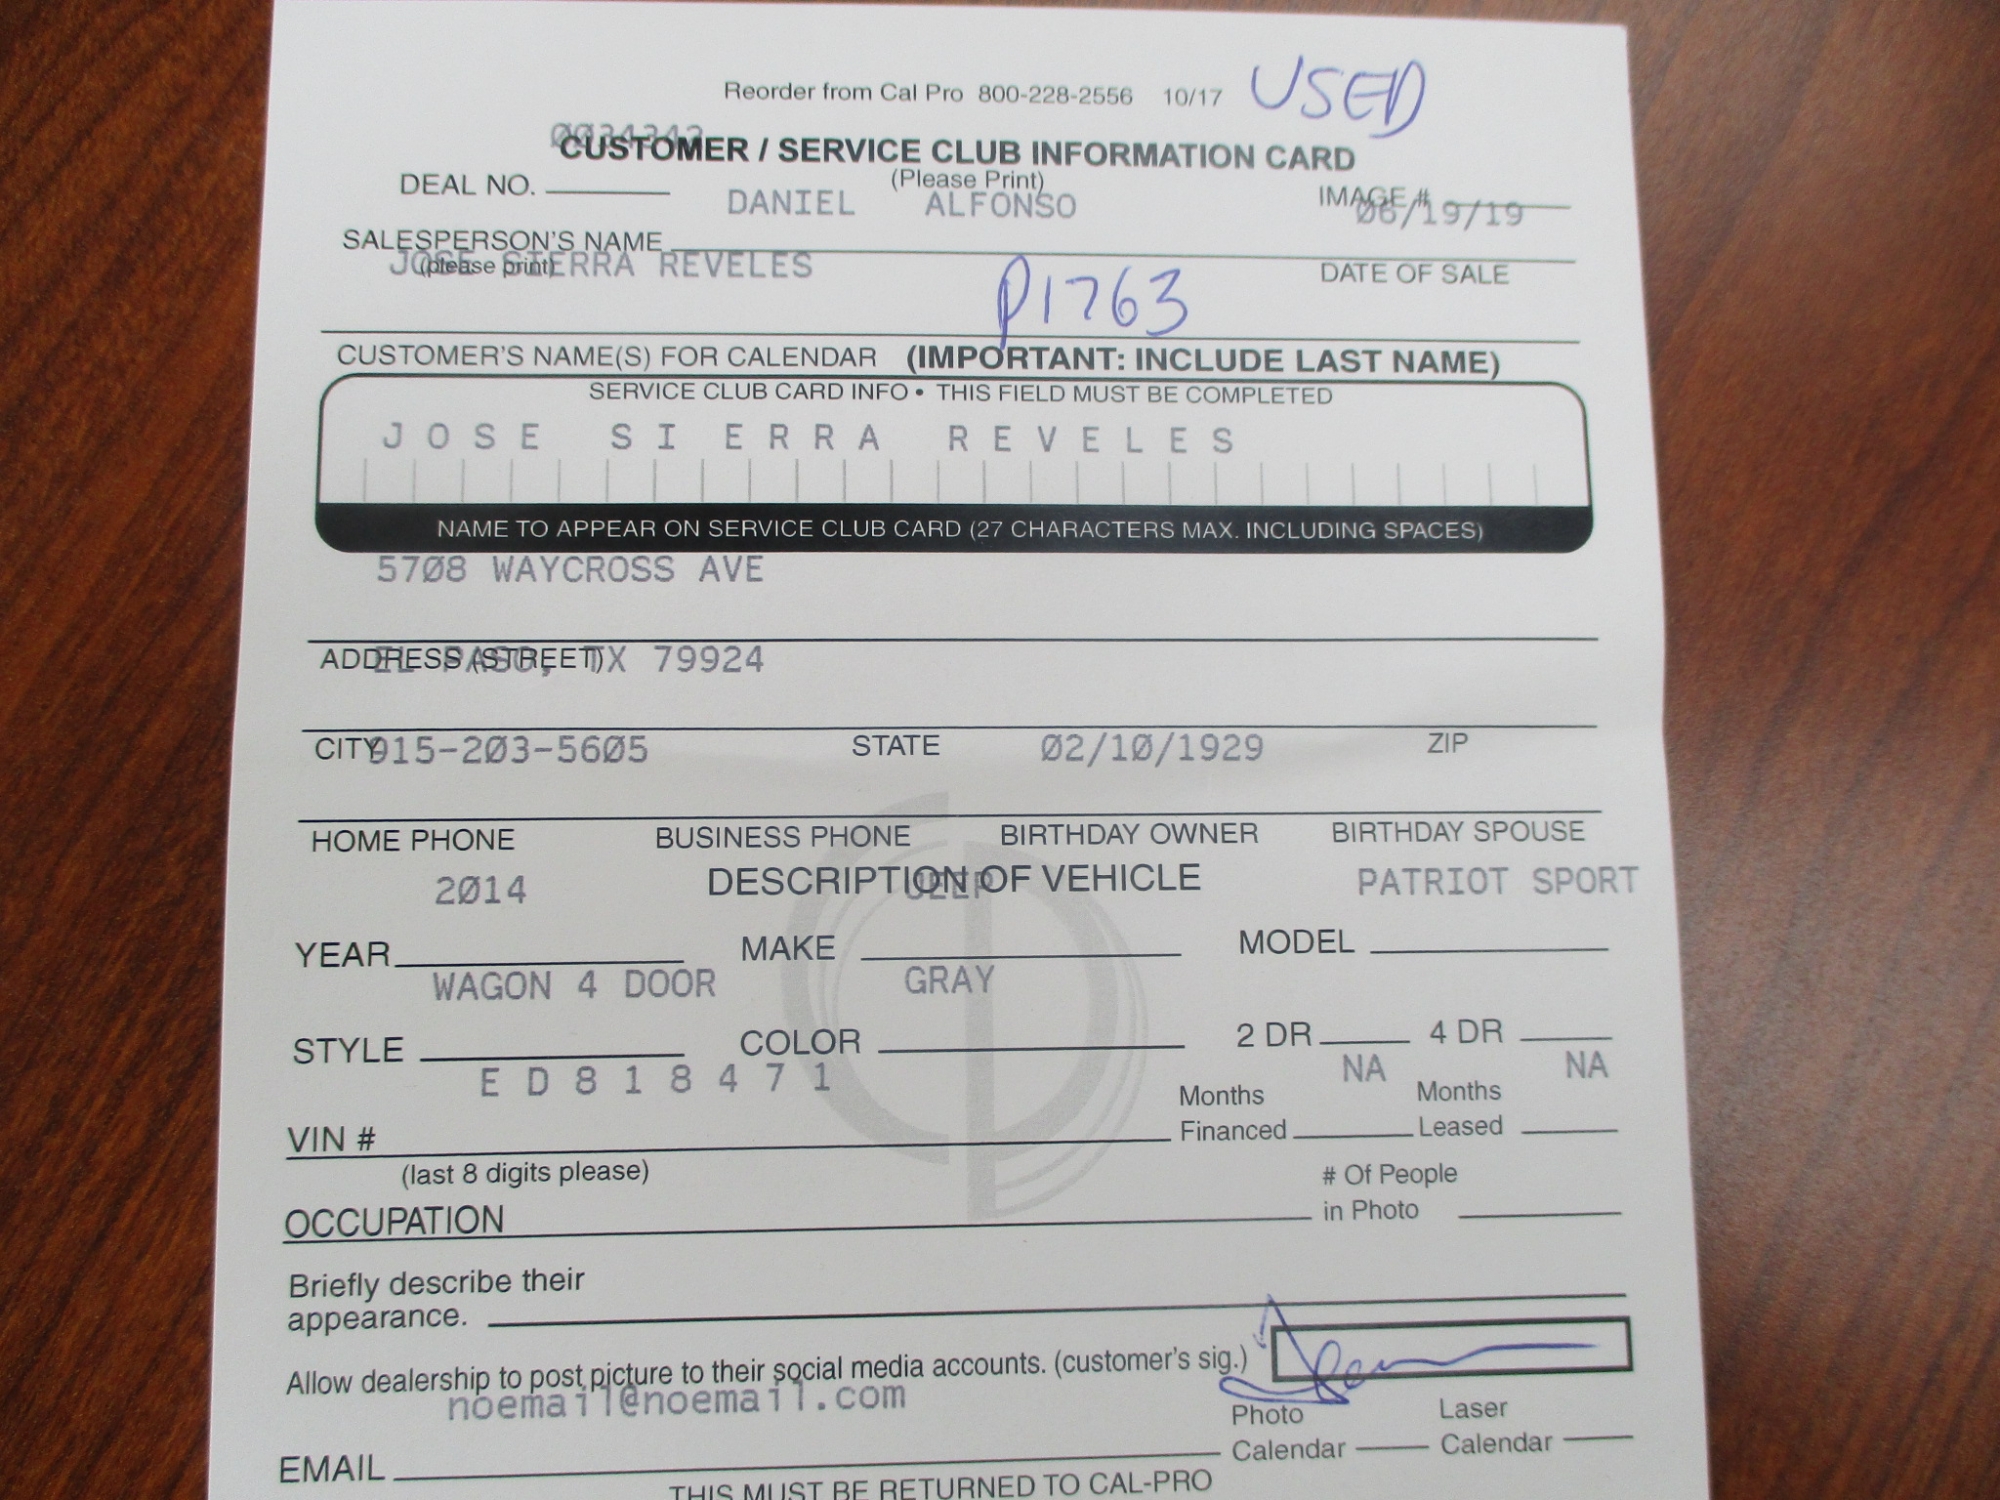 Reorder from Cal Pro 800-228-2556 10/17 USED
0034342
CUSTOMER / SERVICE CLUB INFORMATION CARD
(Please Print)
DEAL NO.
DANIEL ALFONSO
IMAGE #
06/19/19
SALESPERSON'S NAME
(please print)
JOSE SIERRA REVELES
P1763
DATE OF SALE
CUSTOMER'S NAME(S) FOR CALENDAR (IMPORTANT: INCLUDE LAST NAME)
SERVICE CLUB CARD INFO • THIS FIELD MUST BE COMPLETED
JOSE SIERRA REVELES
NAME TO APPEAR ON SERVICE CLUB CARD (27 CHARACTERS MAX. INCLUDING SPACES)
5708 WAYCROSS AVE
ADDRESS (STREET)
EL PASO, TX 79924
CITY STATE ZIP
915-203-5605 02/10/1929
HOME PHONE BUSINESS PHONE BIRTHDAY OWNER BIRTHDAY SPOUSE
DESCRIPTION OF VEHICLE
2014 JEEP PATRIOT SPORT
YEAR MAKE MODEL
WAGON 4 DOOR GRAY
STYLE COLOR 2 DR 4 DR
ED818471 NA NA
VIN # Months Financed Months Leased
(last 8 digits please)
OCCUPATION # Of People in Photo
Briefly describe their
appearance.
Allow dealership to post picture to their social media accounts. (customer's sig.)
noemail@noemail.com
EMAIL Photo Calendar Laser Calendar
THIS MUST BE RETURNED TO CAL-PRO